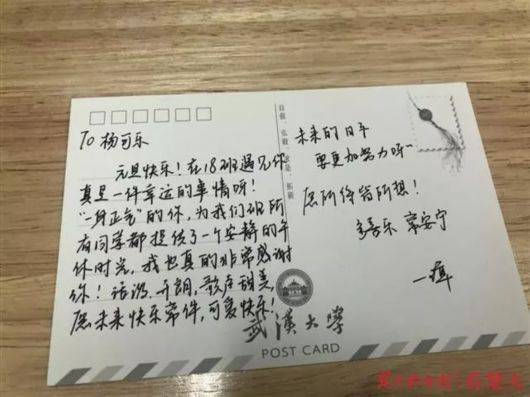 To 杨可乐
元旦快乐！在18班遇见你
真是一件幸运的事情呀！
“一身正气”的你，为我们班所
有同学都提供了一个安静的午
休时光，我也真的非常感谢
你！活泼、开朗、歌声甜美，
愿未来快乐常伴，可爱快乐！
自强 弘毅 求是 拓新
未来的日子
要更加努力呀~
愿所得皆所想！
多喜乐 常安宁
武漢大學
POST CARD